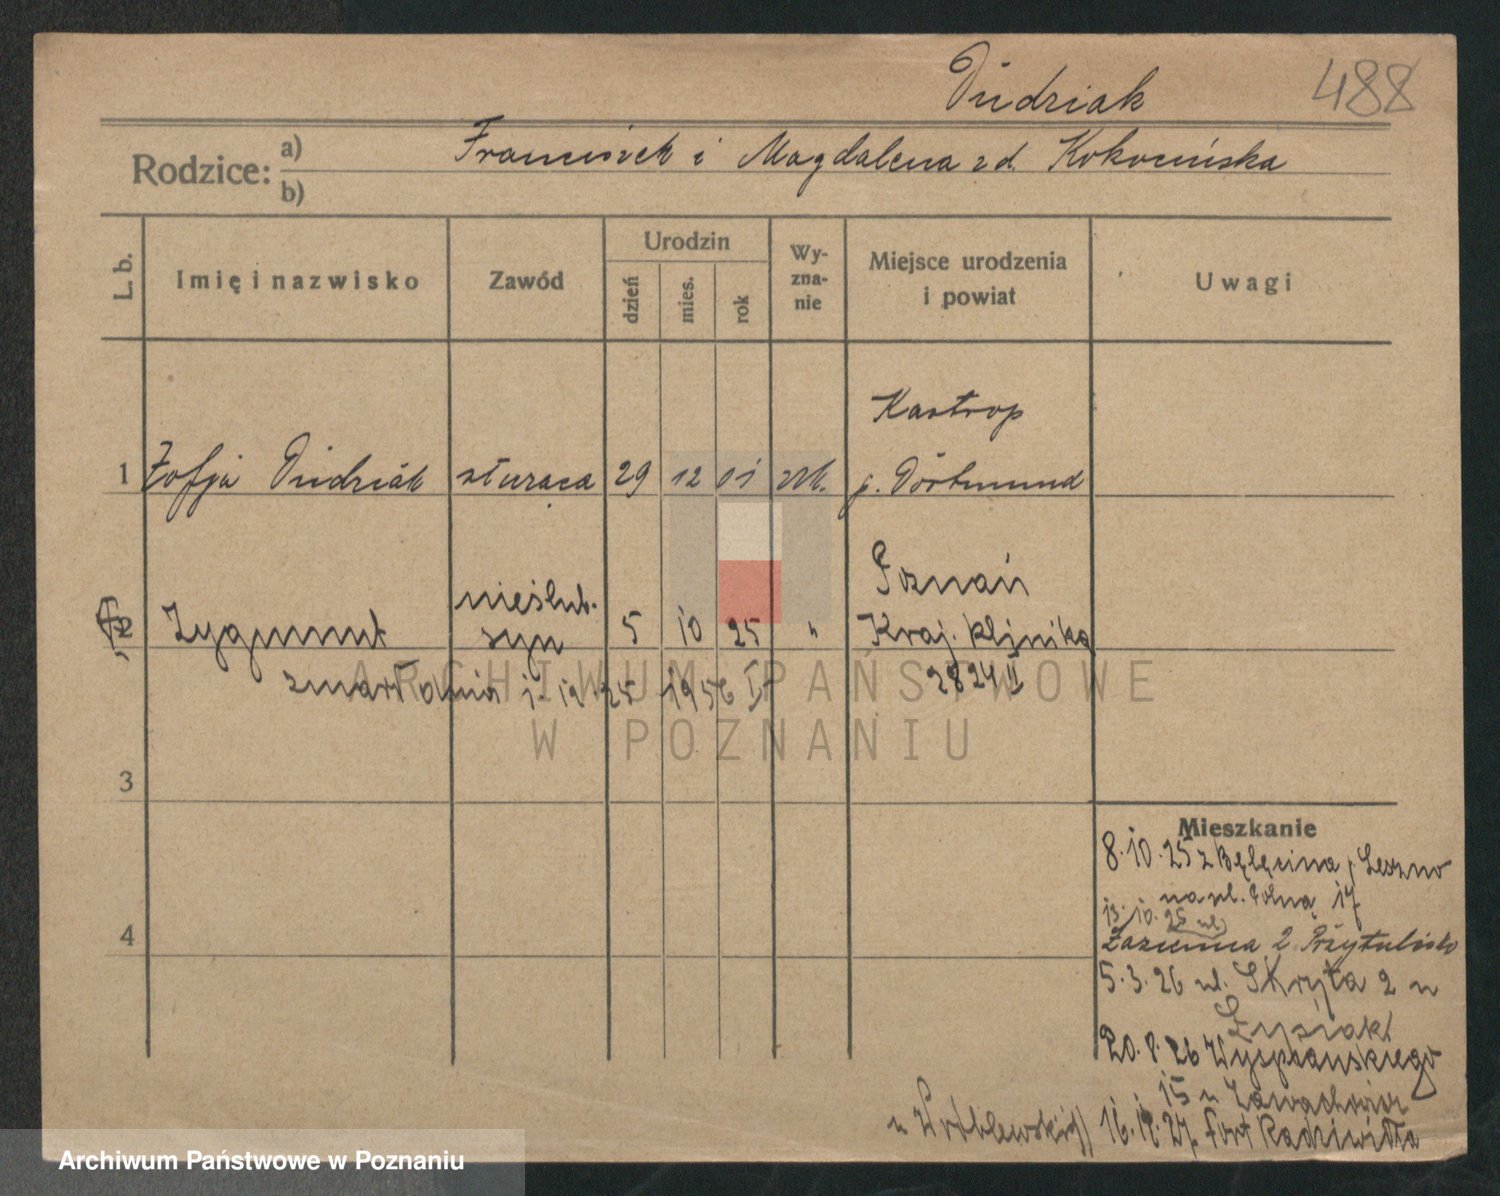 Dudziak
488
Rodzice: a) Franciszek i Magdalena zd. Kokocińska
b)
L. b.
Imię i nazwisko
Zawód
Urodzin
dzień
mies.
rok
Wy-
zna-
nie
Miejsce urodzenia
i powiat
Uwagi
Kastrop
1 Zofja Dudziak służąca 29 12 01 rk. p. Dortmund
nieślub. Poznań
2 Zygmunt syn 5 10 25 " Kraj. klinika
zmarł dnia 1. 12. 25 1956 I 2824 II
3
4
Mieszkanie
8.10.25 z Bęłęcina p. Leszno
na ul. Polną 17
13.10.25 ul.
Łazienna 2 Przytulisko
5.3.26 ul. Skryta 2 u
Łysiak
20.8.26 Wyspiańskiego
15 u
16. 27. Fort Radziwiłła
u Wróblewskich
ARCHIWUM PAŃSTWOWE
W POZNANIU
Archiwum Państwowe w Poznaniu